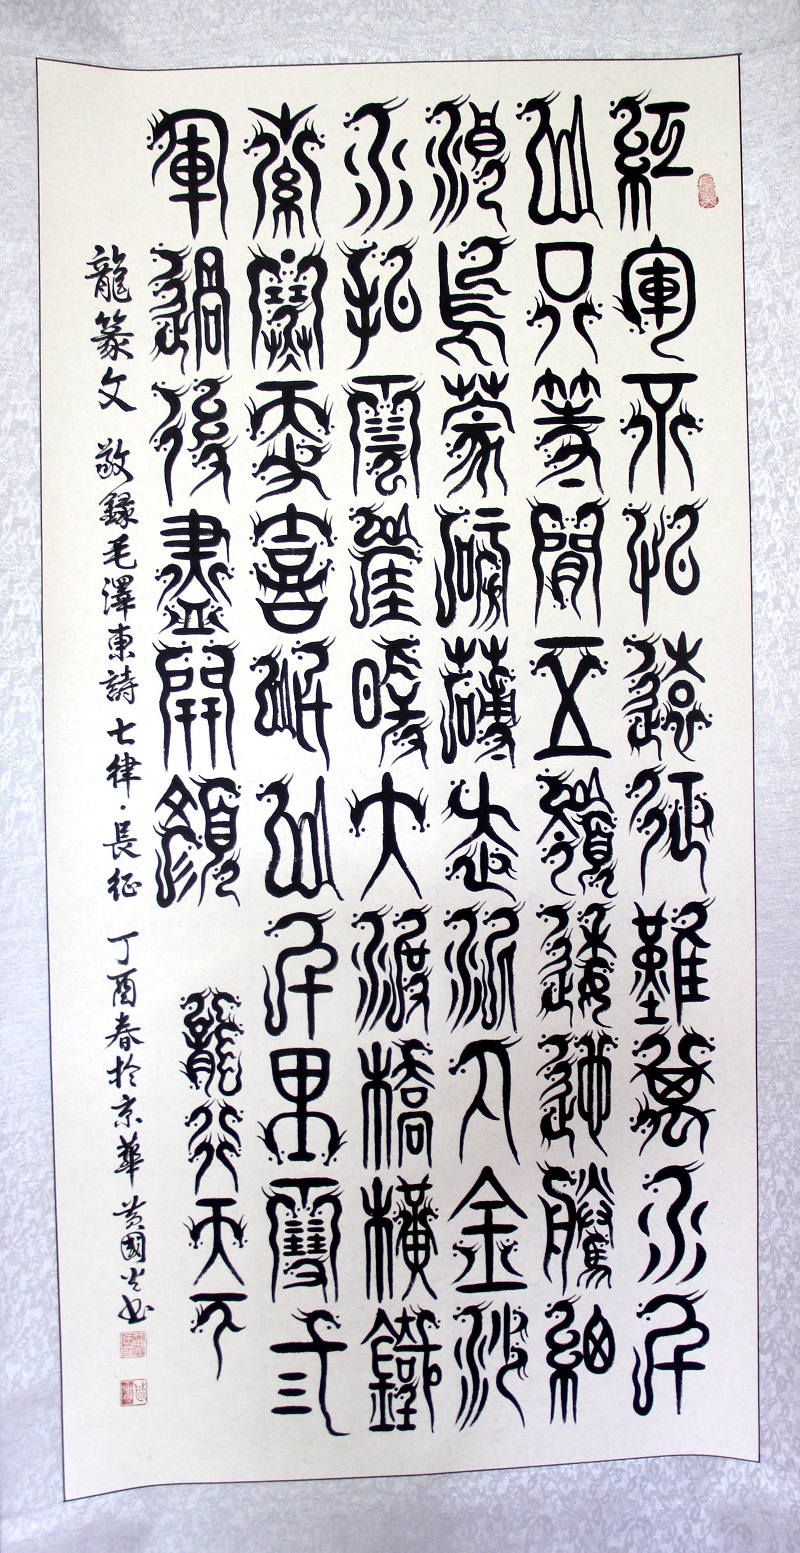 紅軍不怕遠征難萬水千
山只等閒五嶺逶迤騰細
浪烏蒙磅礴走泥丸金沙
水拍雲崖暖大渡橋橫鐵
索寒更喜岷山千里雪三
軍過後盡開顏
龍行天下
龍篆文 敬錄毛澤東詩七律·長征 丁酉春於京華 黃國書